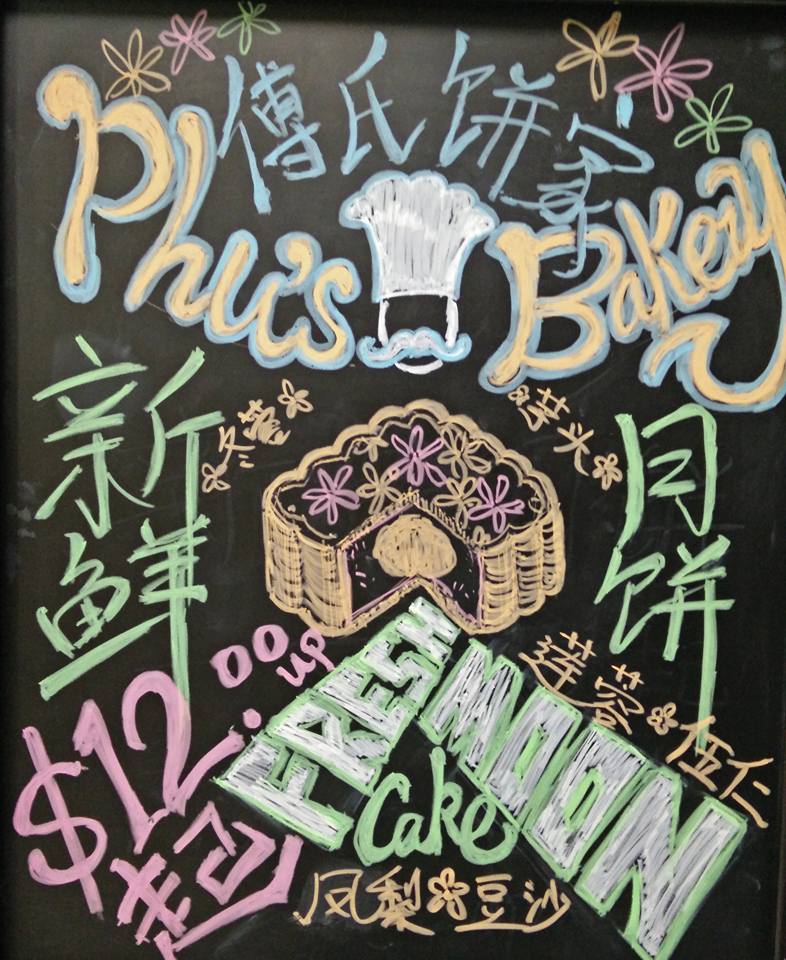 傅氏饼家
Phu's Bakery
新鲜
冬蓉
芋头
月饼
$12.00 up
起
FRESH MOON
Cake
莲蓉 伍仁
凤梨 豆沙